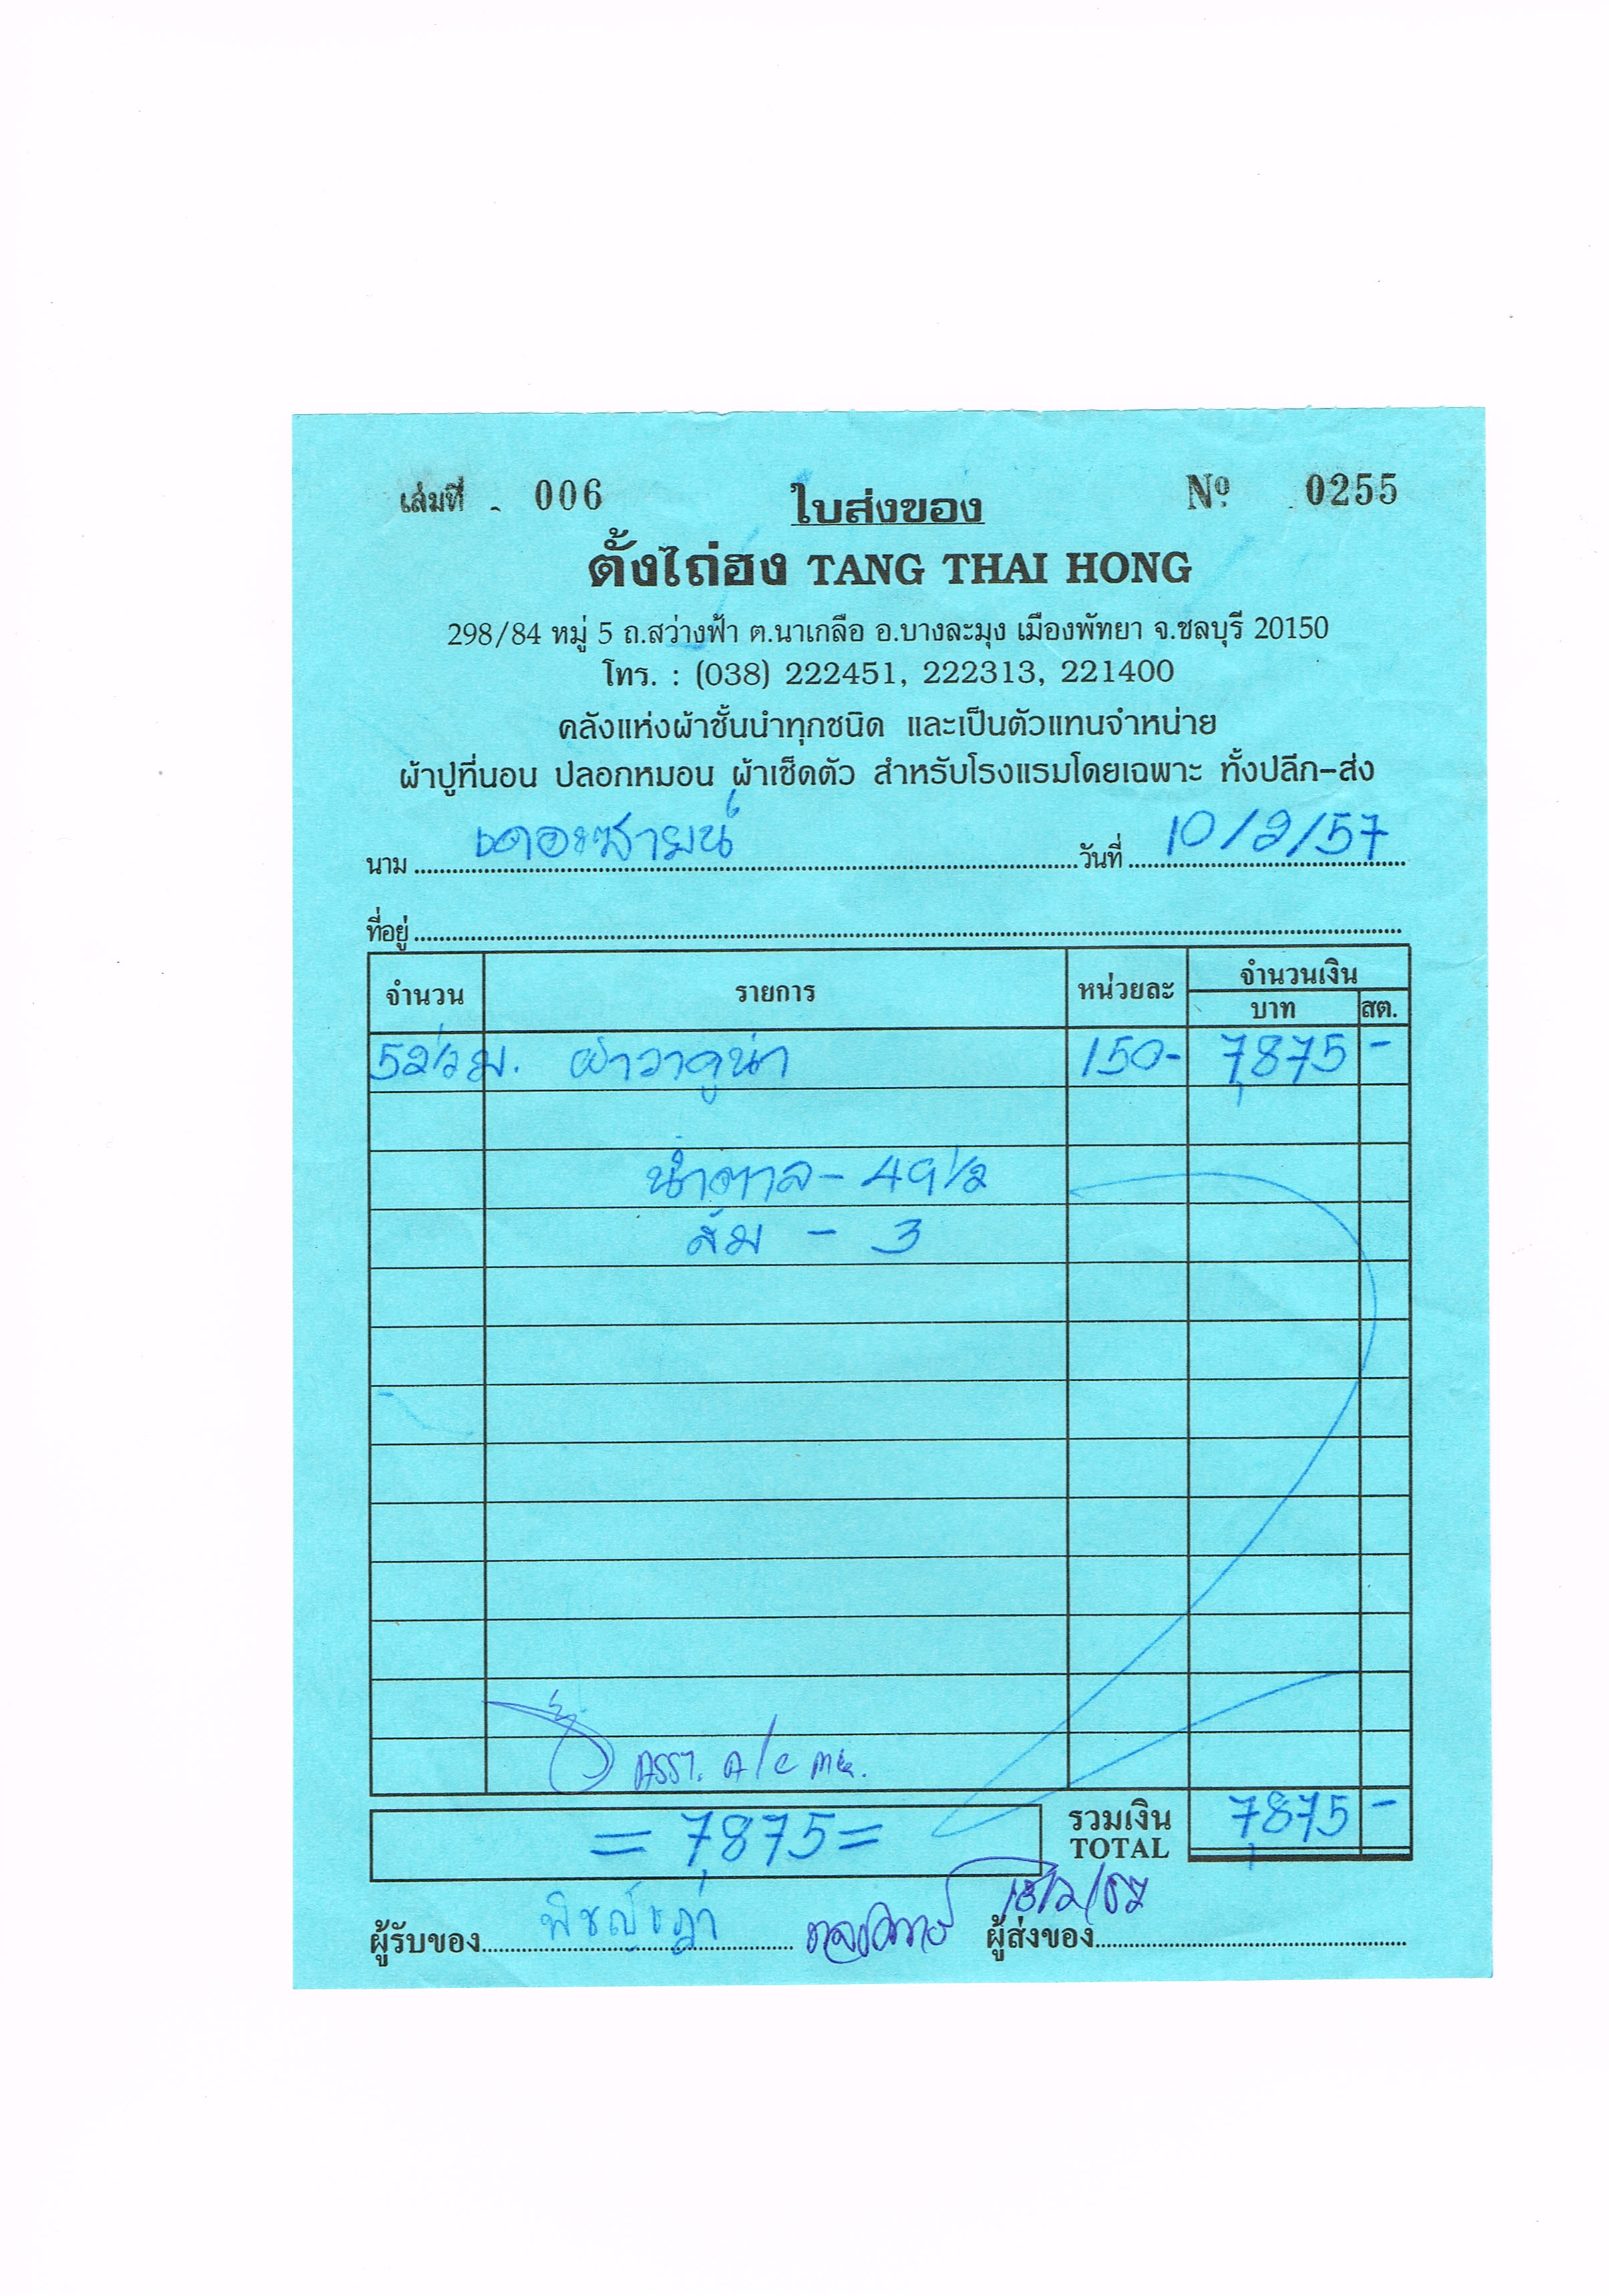 เล่มที่ 006 ใบส่งของ Nº 0255
ตั้งไถ่ฮง TANG THAI HONG
298/84 หมู่ 5 ถ.สว่างฟ้า ต.นาเกลือ อ.บางละมุง เมืองพัทยา จ.ชลบุรี 20150
โทร. : (038) 222451, 222313, 221400
คลังแห่งผ้าชั้นนำทุกชนิด และเป็นตัวแทนจำหน่าย
ผ้าปูที่นอน ปลอกหมอน ผ้าเช็ดตัว สำหรับโรงแรมโดยเฉพาะ ทั้งปลีก-ส่ง
นาม เดอะซายน์ วันที่ 10/2/57
ที่อยู่
จำนวน รายการ หน่วยละ จำนวนเงิน
บาท สต.
52½ ม. ผ้าวาคูน่า 150- 7,875 -
น้ำตาล - 49½
ส้ม - 3
ASST. A/C
= 7,875 = รวมเงิน 7,875 -
TOTAL
ผู้รับของ พิชญ์ชฎา ผู้ส่งของ